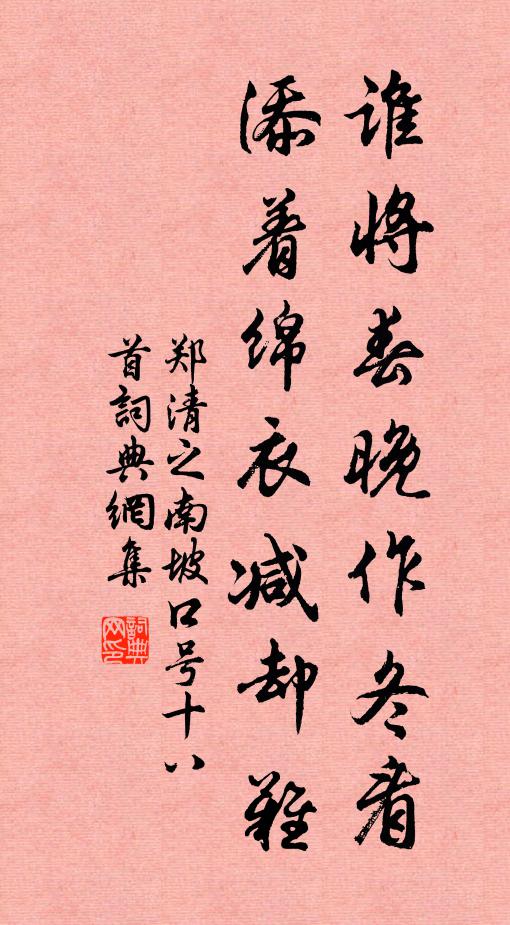 谁将春晚作冬看
添着绵衣减却难
郑清之南坡口号十八
首詞典網集
詞典网印